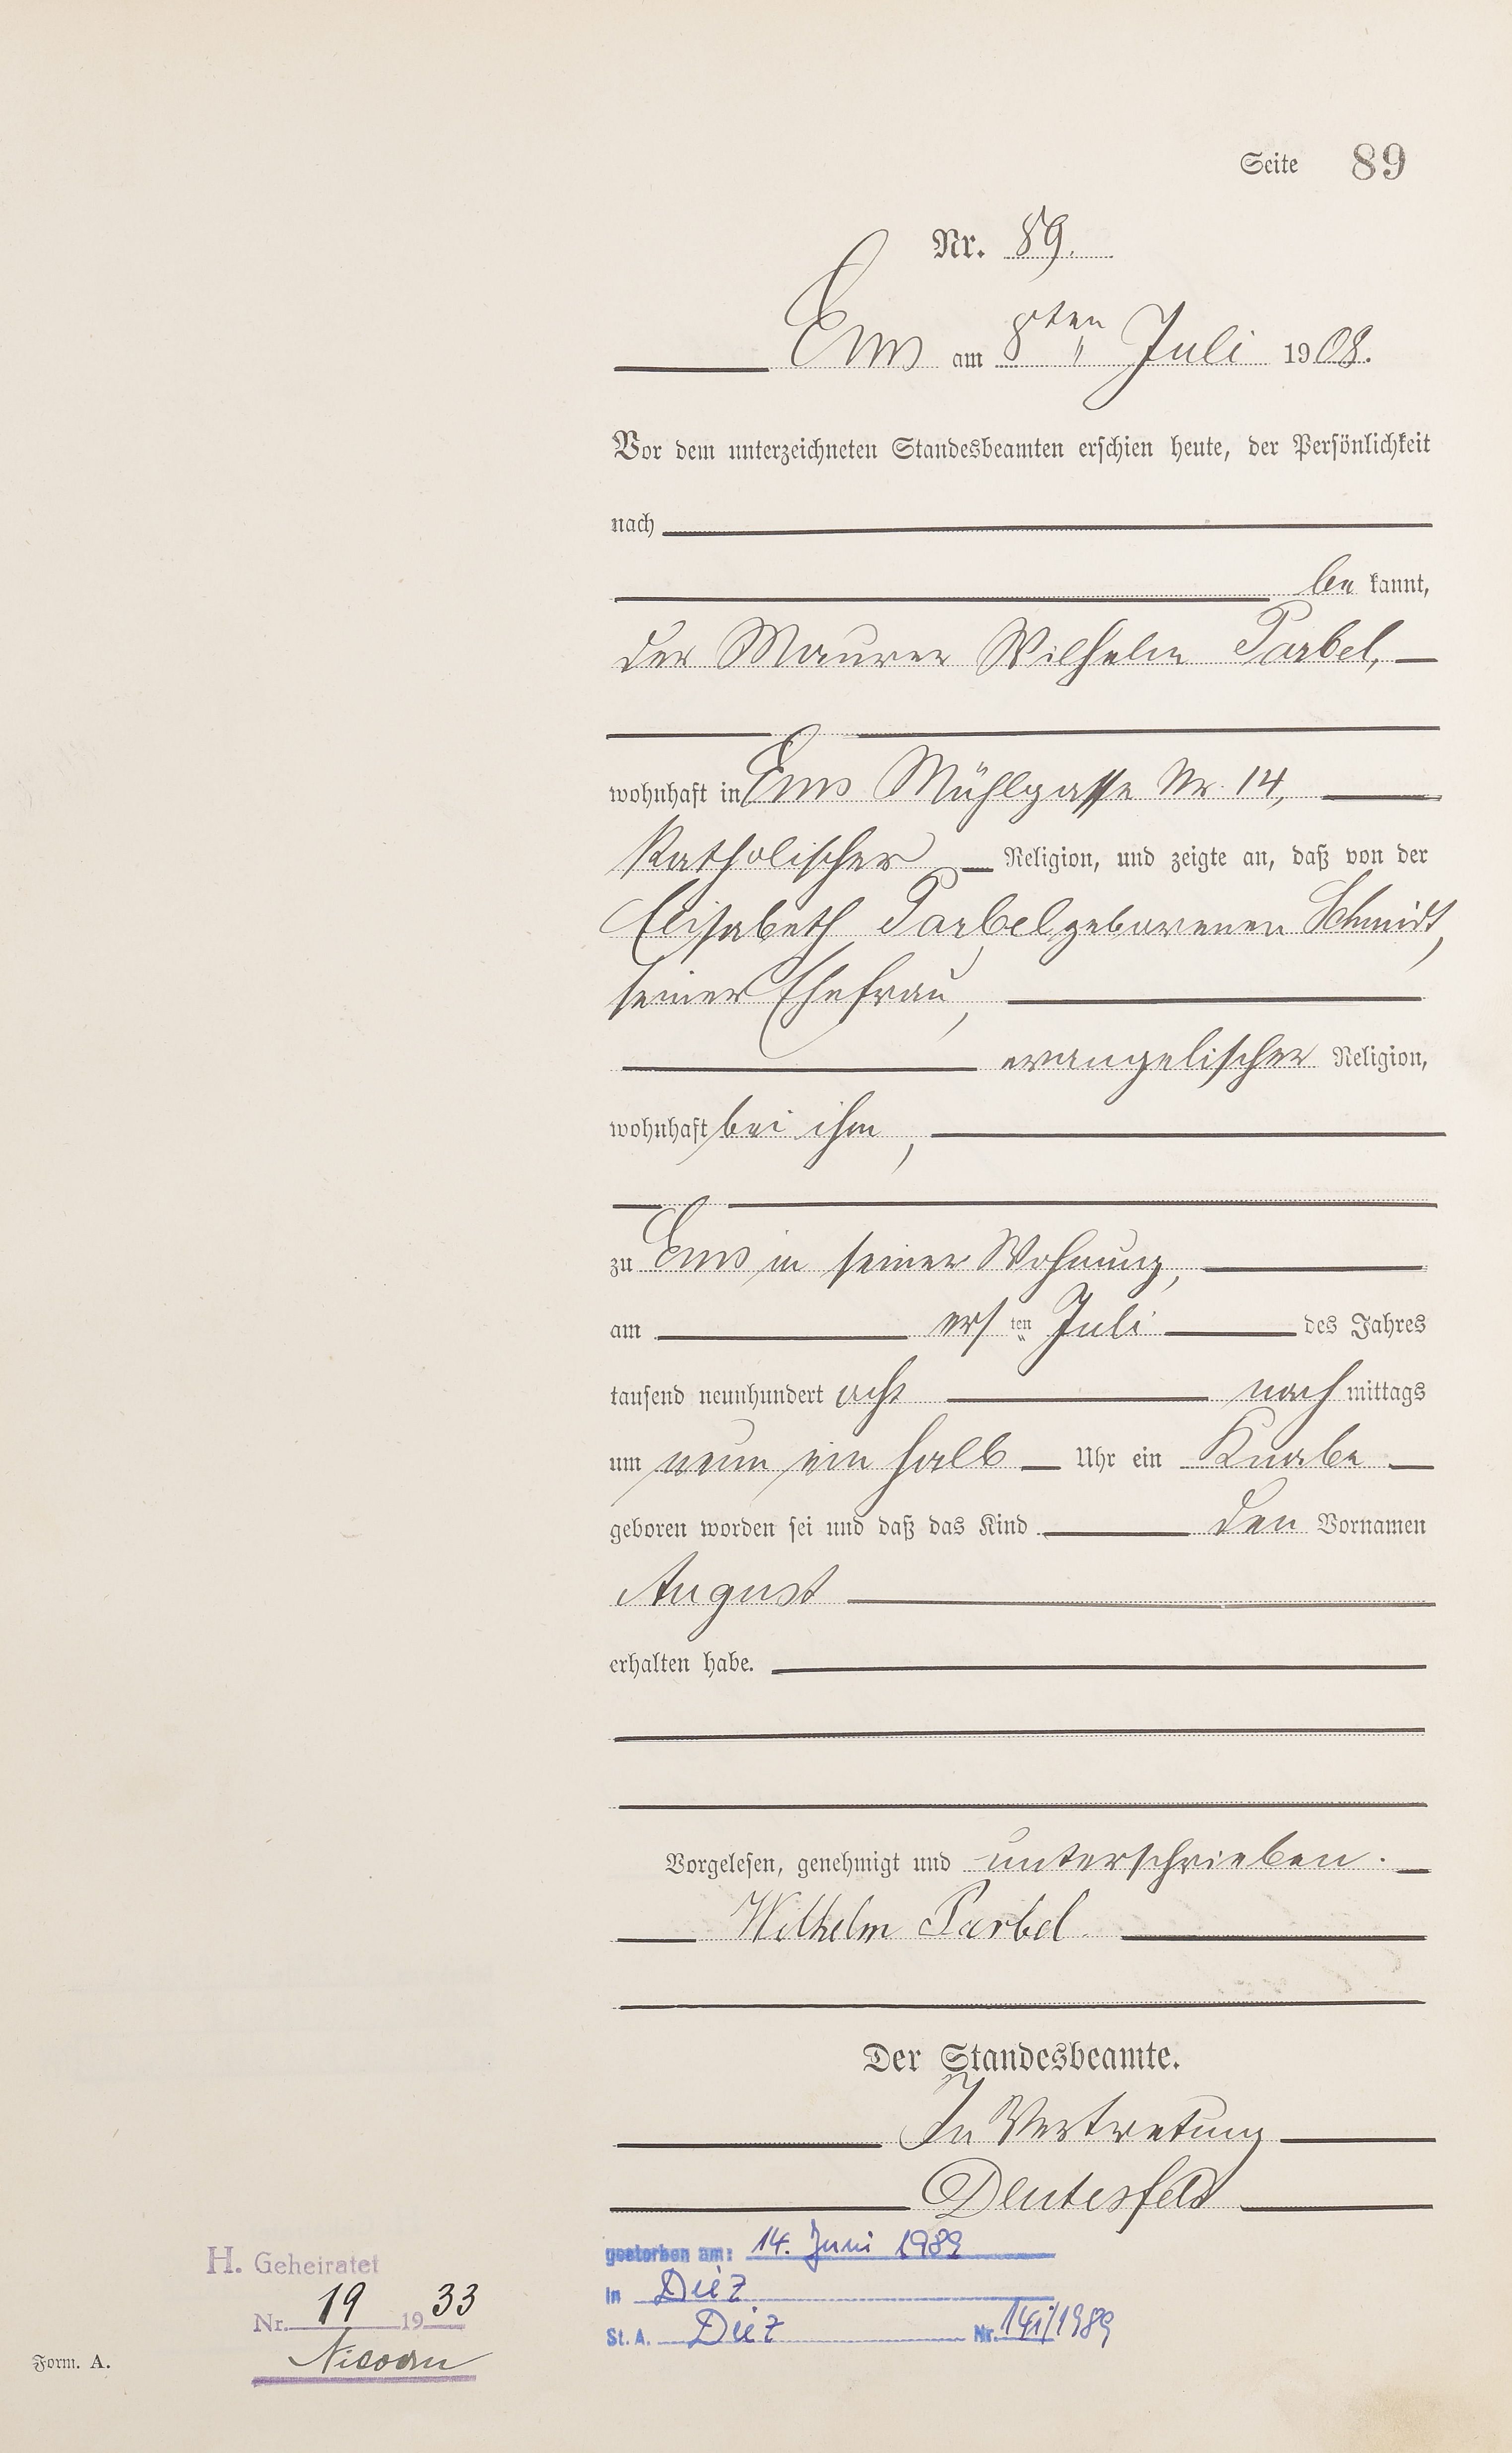 Seite 89
Nr. 89.
Ems am 8ten " Juli 1908.
Vor dem unterzeichneten Standesbeamten erschien heute, der Persönlichkeit
nach
be kannt,
der Maurer Wilhelm Parbel,
wohnhaft in Ems Mühlgasse Nr. 14,
katholischer Religion, und zeigte an, daß von der
Elisabeth Parbel, geborenen Schmidt,
seiner Ehefrau,
evangelischer Religion,
wohnhaft bei ihm,
zu Ems in seiner Wohnung,
am ersten " Juli des Jahres
tausend neunhundert acht nach mittags
um neun ein halb Uhr ein Knabe
geboren worden sei und daß das Kind den Vornamen
August
erhalten habe.
Vorgelesen, genehmigt und unterschrieben.
Wilhelm Parbel.
Der Standesbeamte.
In Vertretung
Deutesfeld
gestorben am: 14. Juni 1989
in Diez
St. A. Diez Nr. /1989
H. Geheiratet
Nr. 19 1933
Form. A.